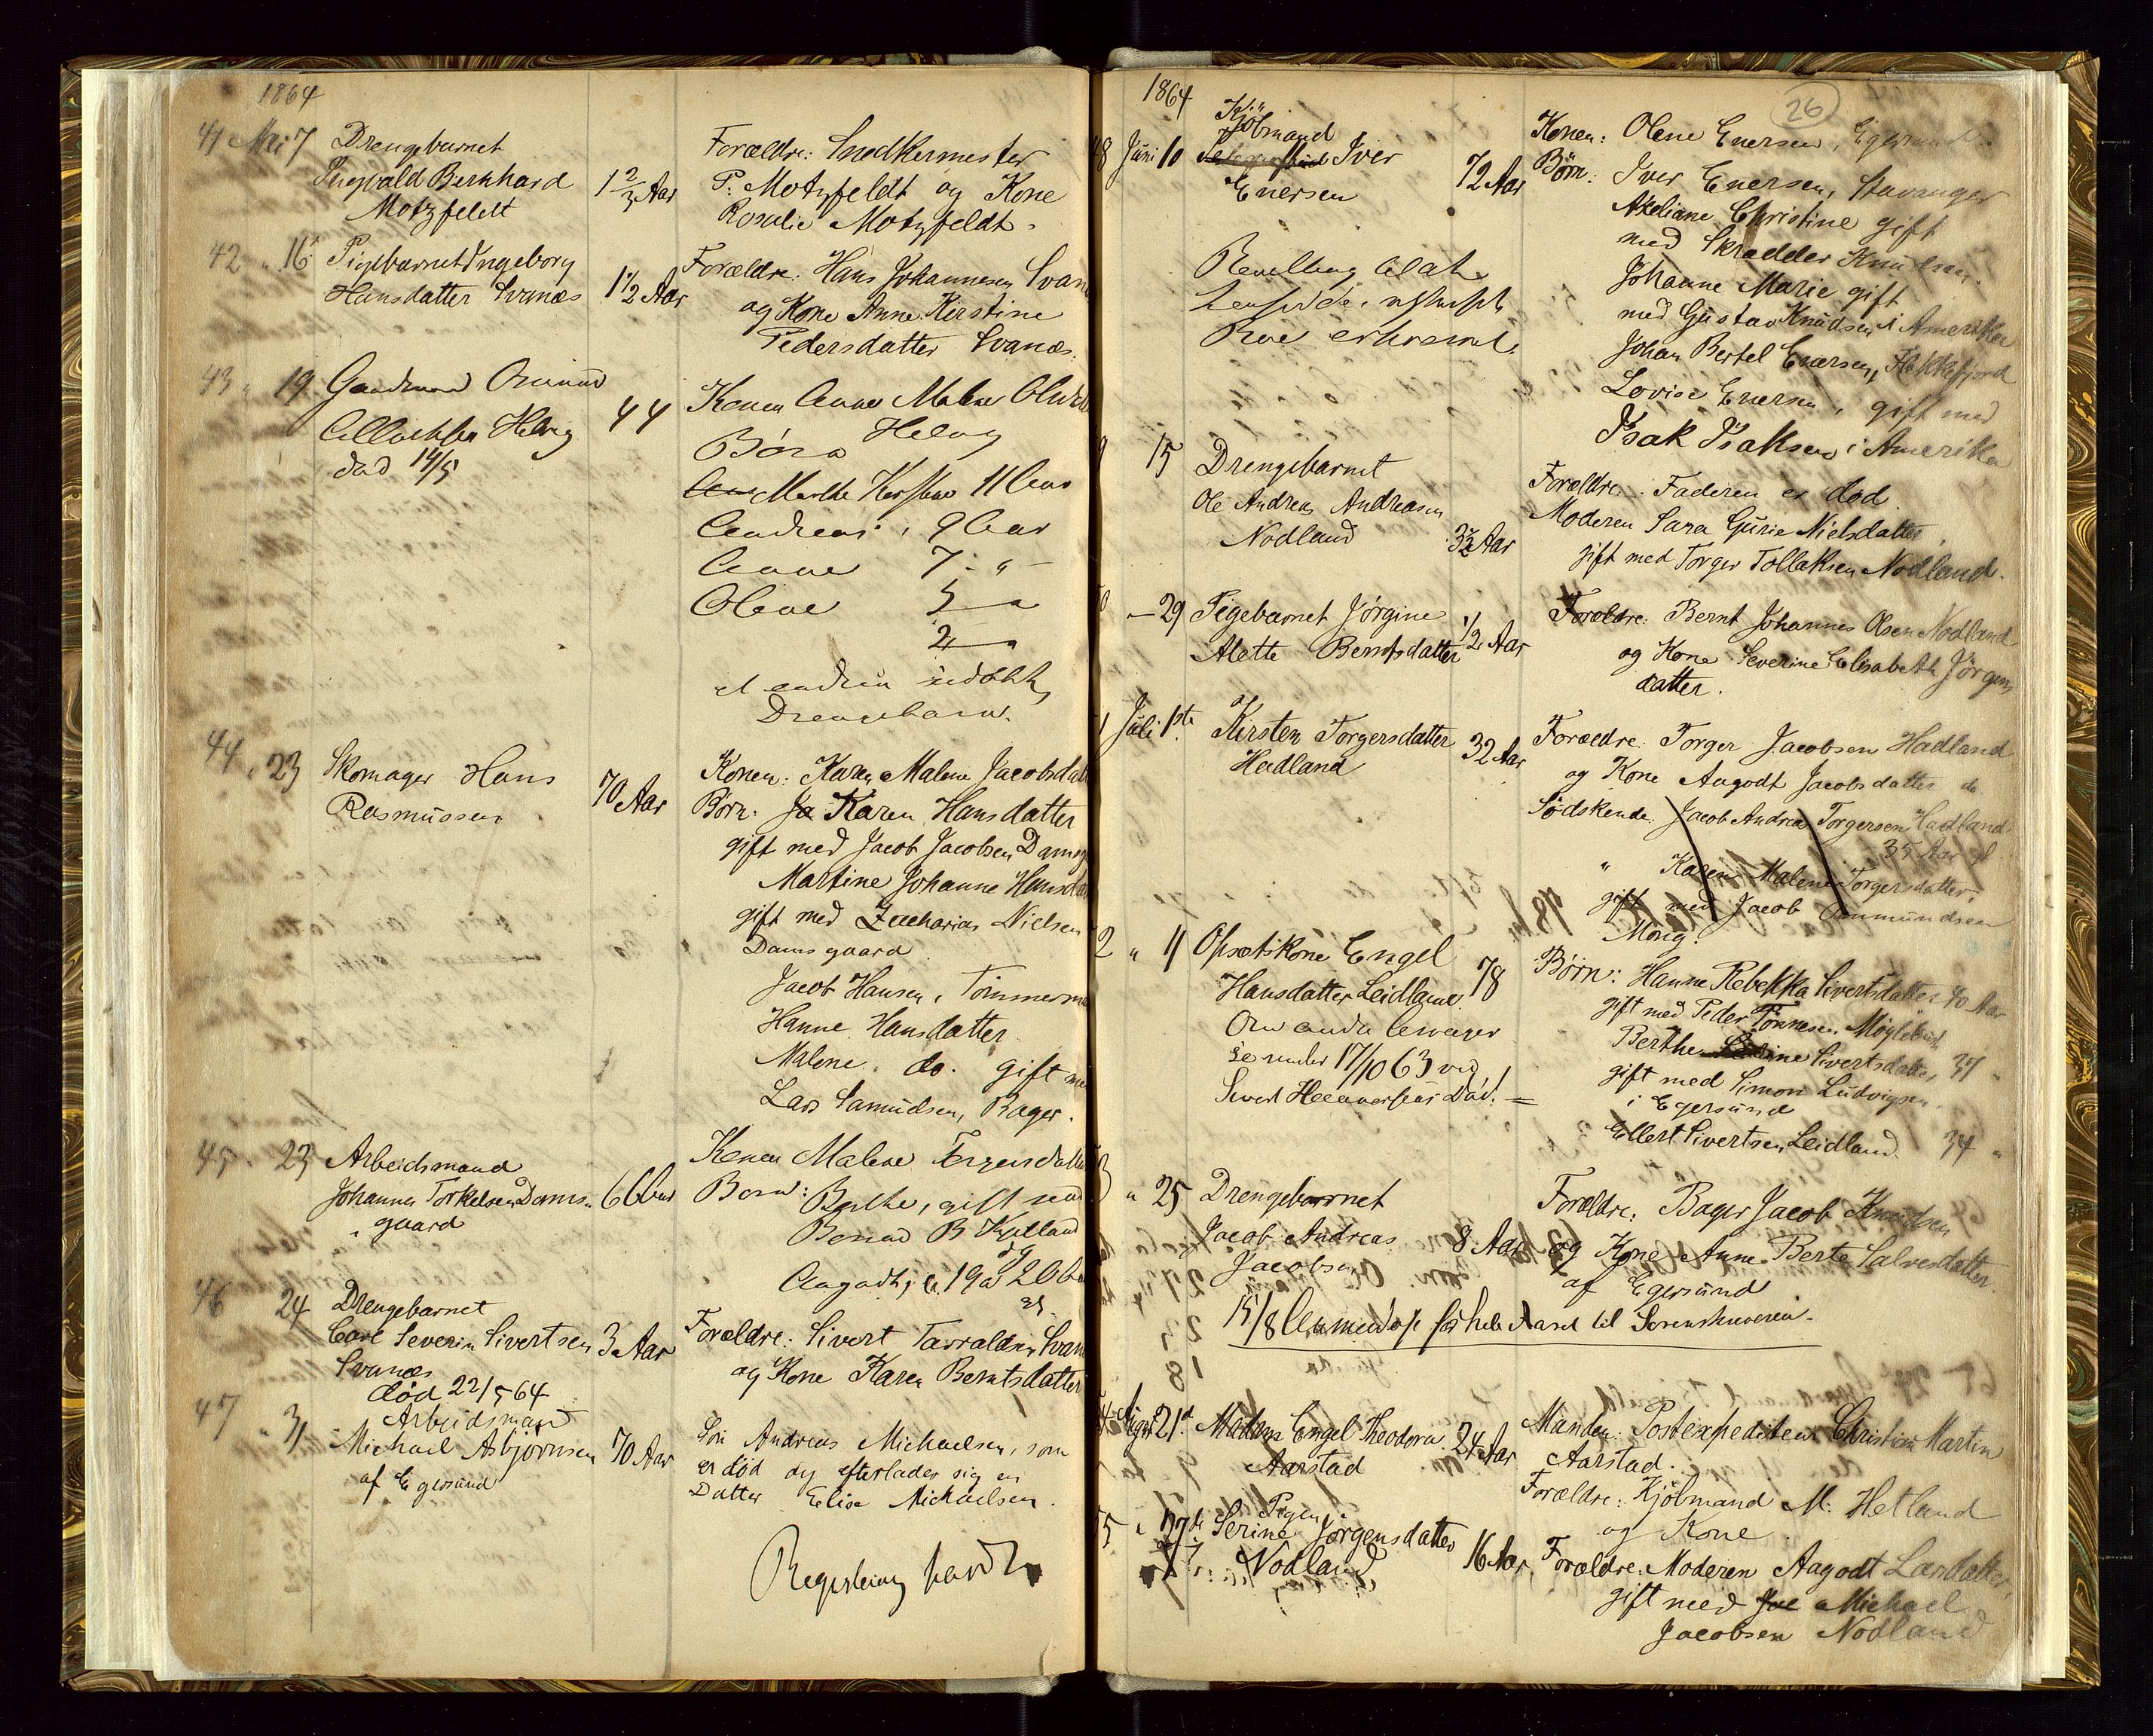 1864
41 Mai 7 Drengebarnet
Sigvald Bernhard 1 2/3 Aar
Motzfeldt
Forældre: Snedkermester
P. Motzfeldt og Kone
Rosalie Motzfeldt.
42 " 16 Pigebarnet Ingeborg
Hansdatter Svanæs 1 1/2 Aar
Forældre: Hans Johannesen Svan
og Kone Anne Kirstine
Pedersdatter Svanæs.
43 " 19 Gaardmand
Helvig 44
død 14/5
Konen Anne Malene
Helvig
Børn
Marthe Kirstine 11 Aar
Andreas, 9 Aar
Anne 7 - "
Olene 5 — "
2 — "
et endnu udøbt
Drengebarn.
44 " 23 Skomager Hans
Rasmussen 70 Aar
Konen: Karen Malene Jacobsdat
Børn: Ja Karen Hansdatter
gift med Jacob Jacobsen Damsg
Martine Johanne Hansda
gift med Zacharias Nielsen
Damsgaard
Jacob Hansen, Tømmerma
Hanne Hansdatter
Malene do. gift me
Lars Samudsen, Bager.
45 " 23 Arbeidsmand
Johannes Torkelsen Dams-
gaard
Konen Malene
Børn: Berthe, gift med
Kjelland
og
19 20
46 24 Drengebarnet
Carl Severin Sivertsen 3 Aar
Svanæs
død 22/5 64
Forældre: Sivert Tarraldsen Svan
og Kone Karen Berntsdatter
47 " 31 Arbeidsmand
Michael Asbjørnsen 70 Aar
af Egersund
Søn Andreas Michaelsen, som
er død og efterlader sig en
Datter Elise Michaelsen.
1864 26
48 Juni 10 Kjøbmand
Iver
Enersen 72 Aar
Konen: Olene Enersen, Egersund.
Børn: Iver Enersen, Stavanger
Axeliane Christine gift
med Skrædder Knudsen.
Johanne Marie gift
med Gustav Knudsen i Amerika
Johan Bertel Enersen, Flekkefjord
Lovise Enersen, gift med
Isak Isaksen i Amerika
9 15 Drengebarnet
Ole Andreas Andreasen
Nodland 3 1/2 Aar
Forældre: Faderen er død.
Moderen Sara Gurie Nielsdatter,
gift med Torger Tollaksen Nodland.
0 — 29 Pigebarnet Jørgine
Alette Berntsdatter 1/2 Aar
Forældre: Bernt Johannes Olsen Nodland
og Kone Severine Elisabeth Jørgens
datter.
1 Juli 1ste Kirsten Torgersdatter
Hadland 32 Aar
Forældre: Torger Jacobsen Hadland
og Kone Aagodt Jacobsdatter do
Sødskende Jacob Andreas Torgersen Hadland
35 Aar gl.
" Karen Malene Torgersdatter,
gift med Jacob Ommundsen
Mong.
2 " 11 Opsætskone Engel
Hansdatter Leidland 78
se under 17/10 63 ved
Sivert død. =
Børn: Hanne Rebekka Sivertsdatter 40 Aar
gift med Peder Tønnesen Møglebust
Berthe Sivertsdatter 37 "
gift med Simon Ludvigsen
i Egersund
Ellert Sivertsen Leidland. 34 "
3 " 25 Drengebarnet
Jacob Andreas
Jacobsen 8 Aar
Forældre: Bager Jacob Knudsen
og Kone Anne Berte Salvesdatter
af Egersund
15/8 hele Aaret til Sorenskriveren.
4 Augst 21de Madam Engel Theodora
Aarstad 24 Aar
Manden: Postexpediteur Christian Martin
Aarstad.
Forældre: Kjøbmand M. Hetland
og Kone
5 " 27de Pigen
Serine Jørgensdatter
Nodland 16 Aar
Forældre: Moderen Aagodt Larsdatter,
gift med Michael
Jacobsen Nodland